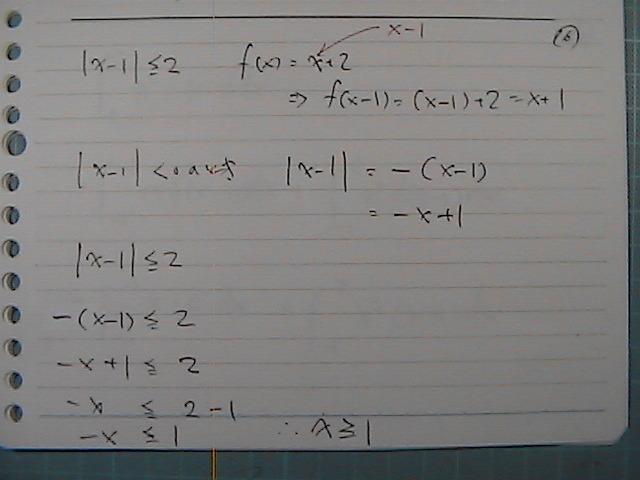 x-1
(6)
|x-1| ≤ 2 f(x) = x+2
⇒ f(x-1) = (x-1)+2 = x+1
|x-1| < 0 |x-1| = -(x-1)
= -x+1
|x-1| ≤ 2
-(x-1) ≤ 2
-x+1 ≤ 2
-x ≤ 2-1
-x ≤ 1 ∴ x ≥ 1